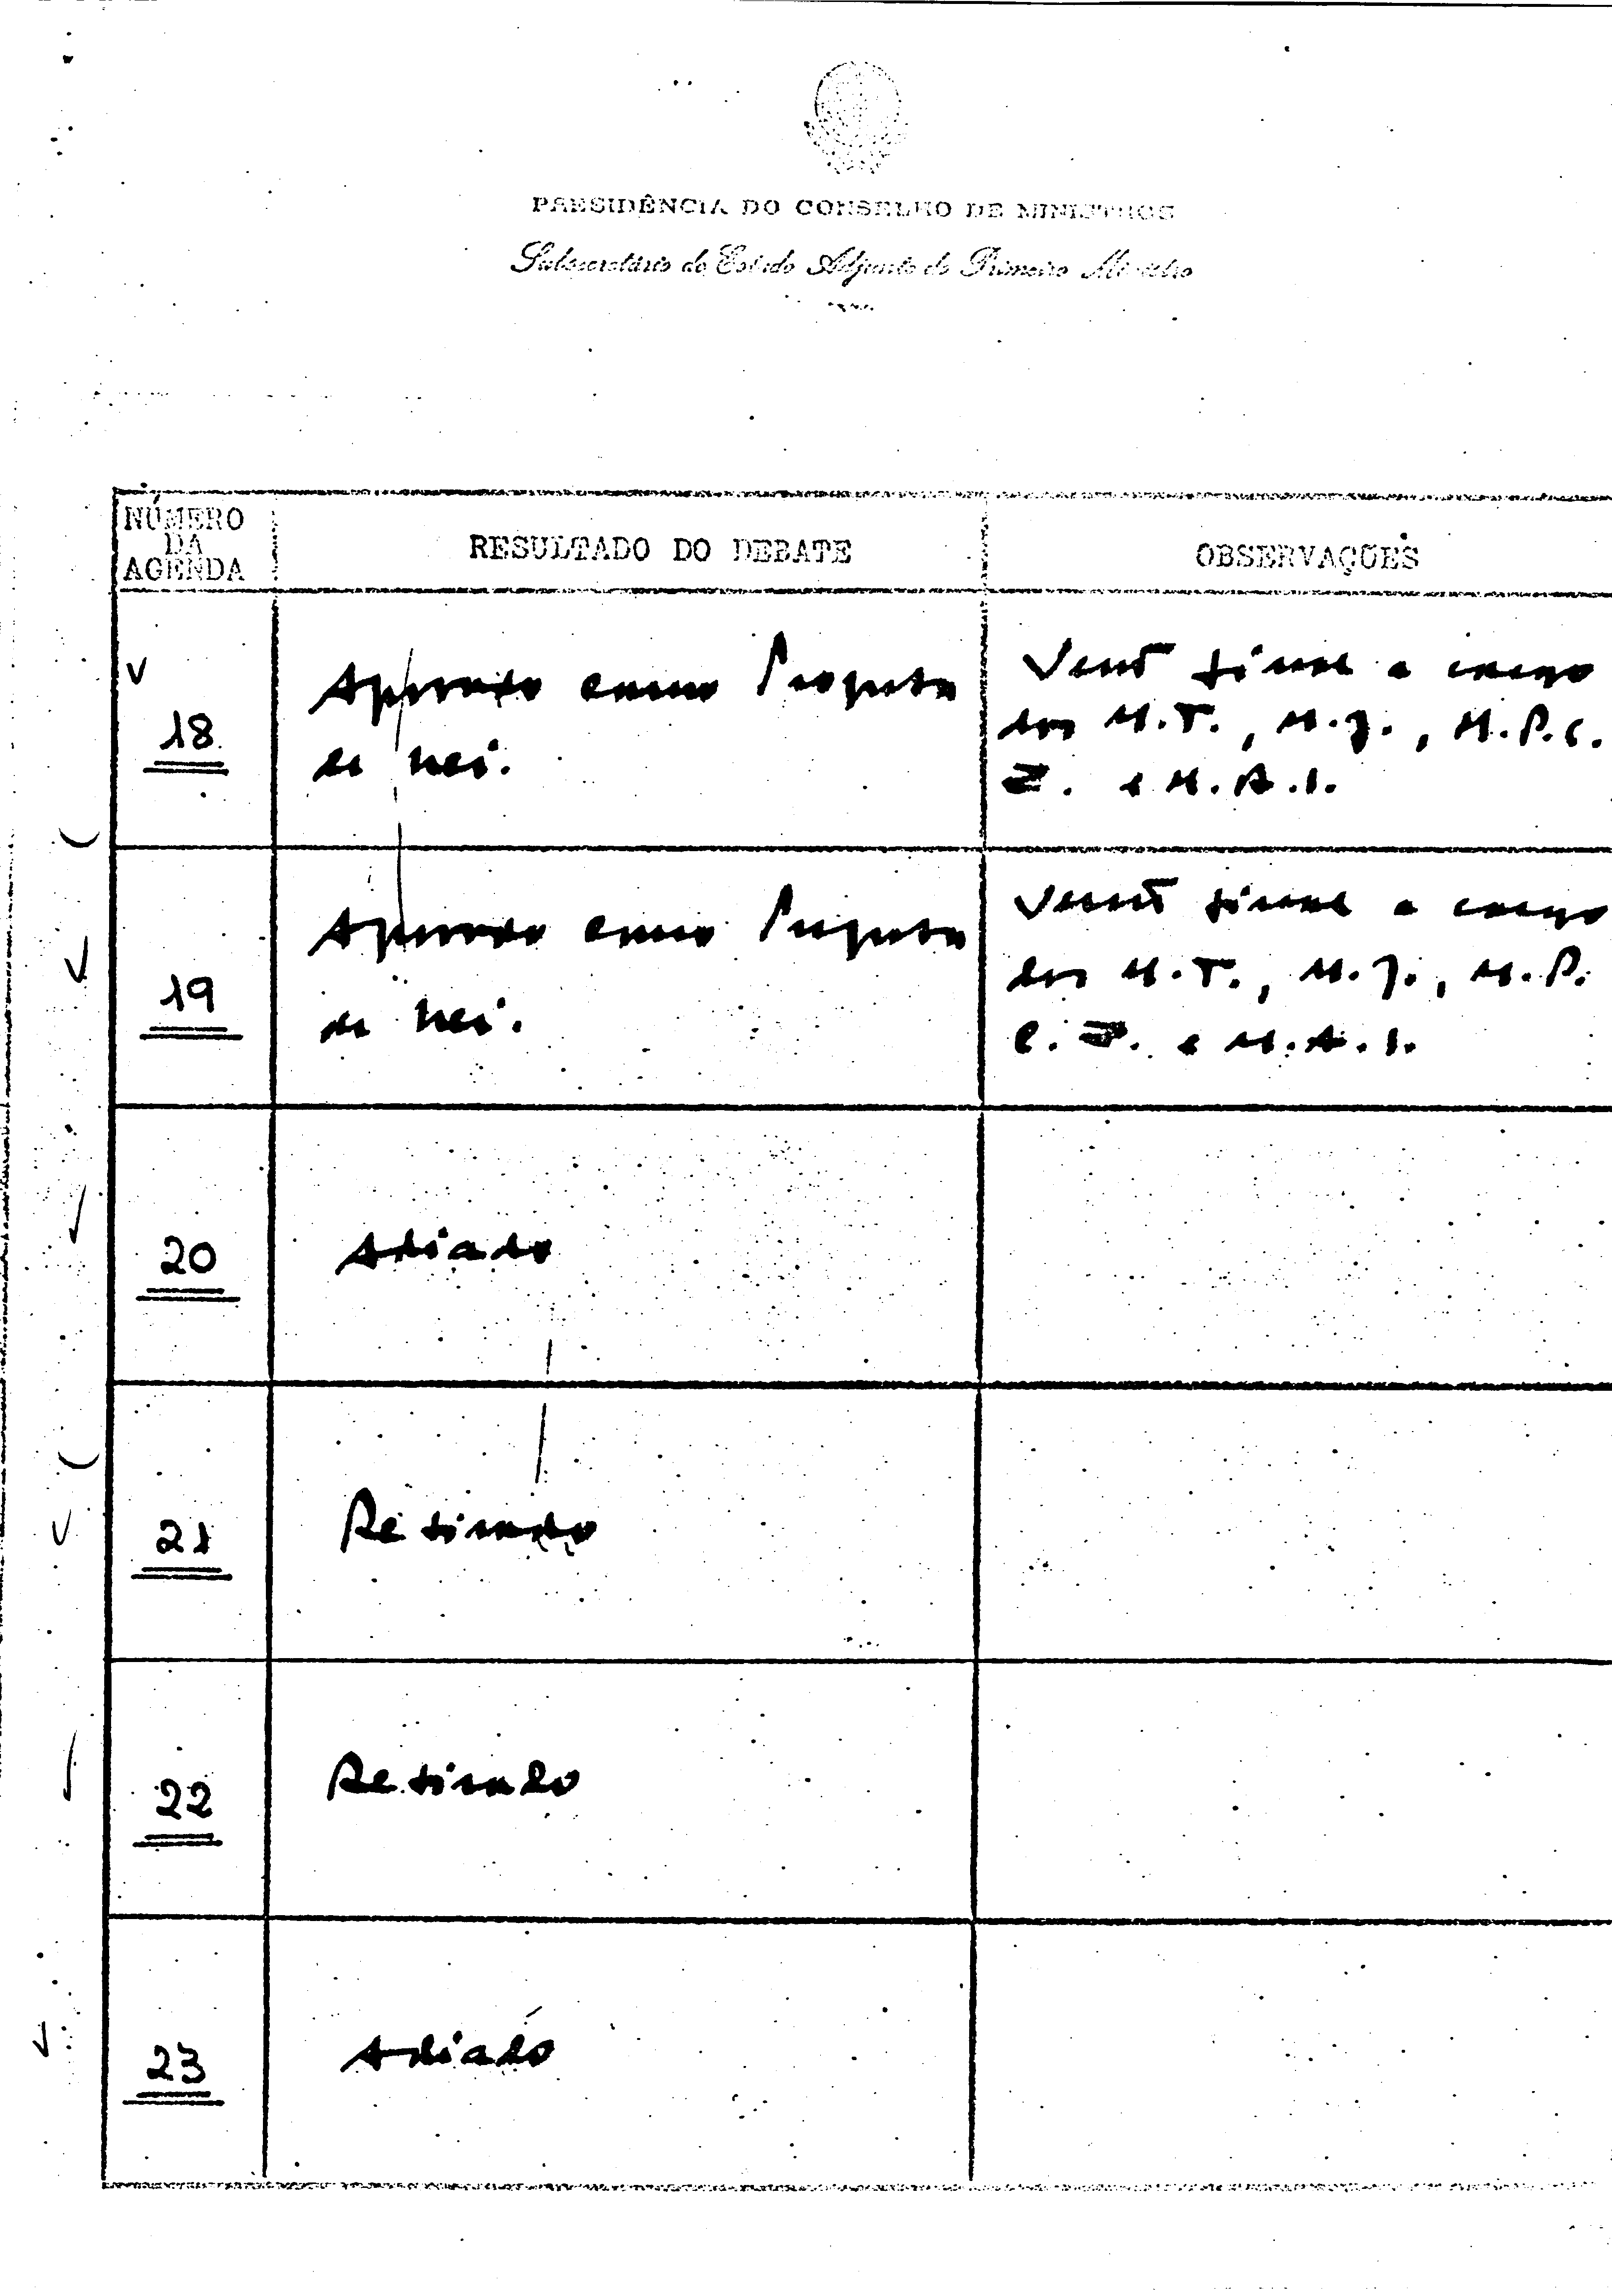 PRESIDÊNCIA DO CONSELHO DE MINISTROS
Subsecretário de Estado Adjunto do Primeiro Ministro
NÚMERO
DA
AGENDA
RESULTADO DO DEBATE
OBSERVAÇÕES
18
Aprovado como Proposta
de Lei.
Versão final a cargo
dos M.T., M.J., M.P.C.
E. e M.A.I.
19
Aprovado como Proposta
de Lei.
Versão final a cargo
dos M.T., M.J., M.P.
C.E. e M.A.I.
20
Adiado
21
Retirado
22
Retirado
23
Adiado